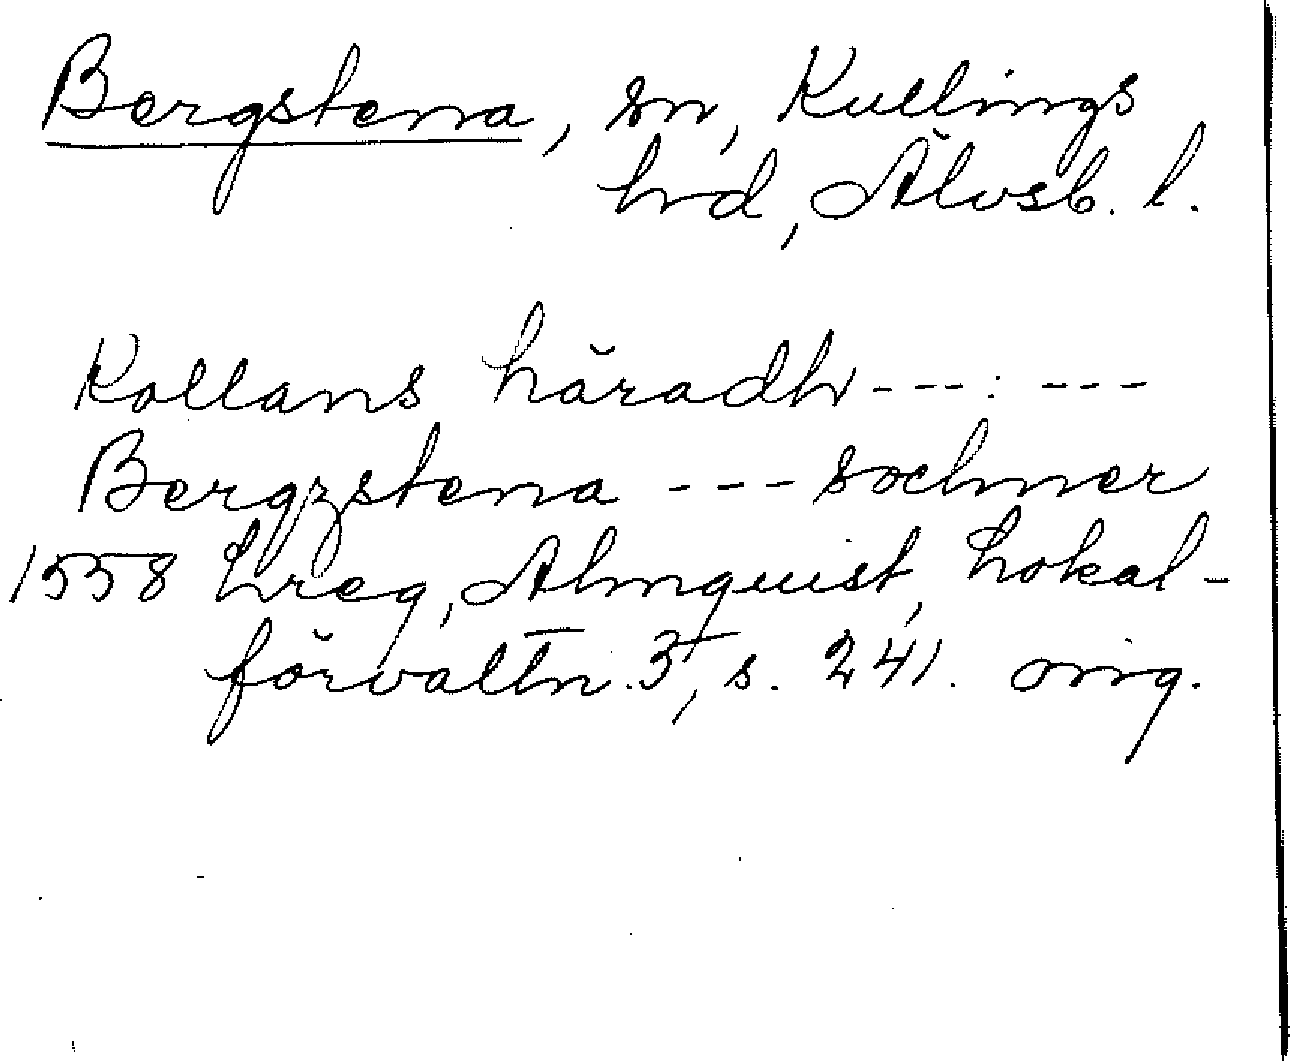 Bergstena, sn, Kullings
hrd, Älvsb. l.
Kollans häradh ---: ---
Bergzstena --- sochner
1558 Lreg, Almquist, Lokal-
förvaltn. 3, s. 241. orig.